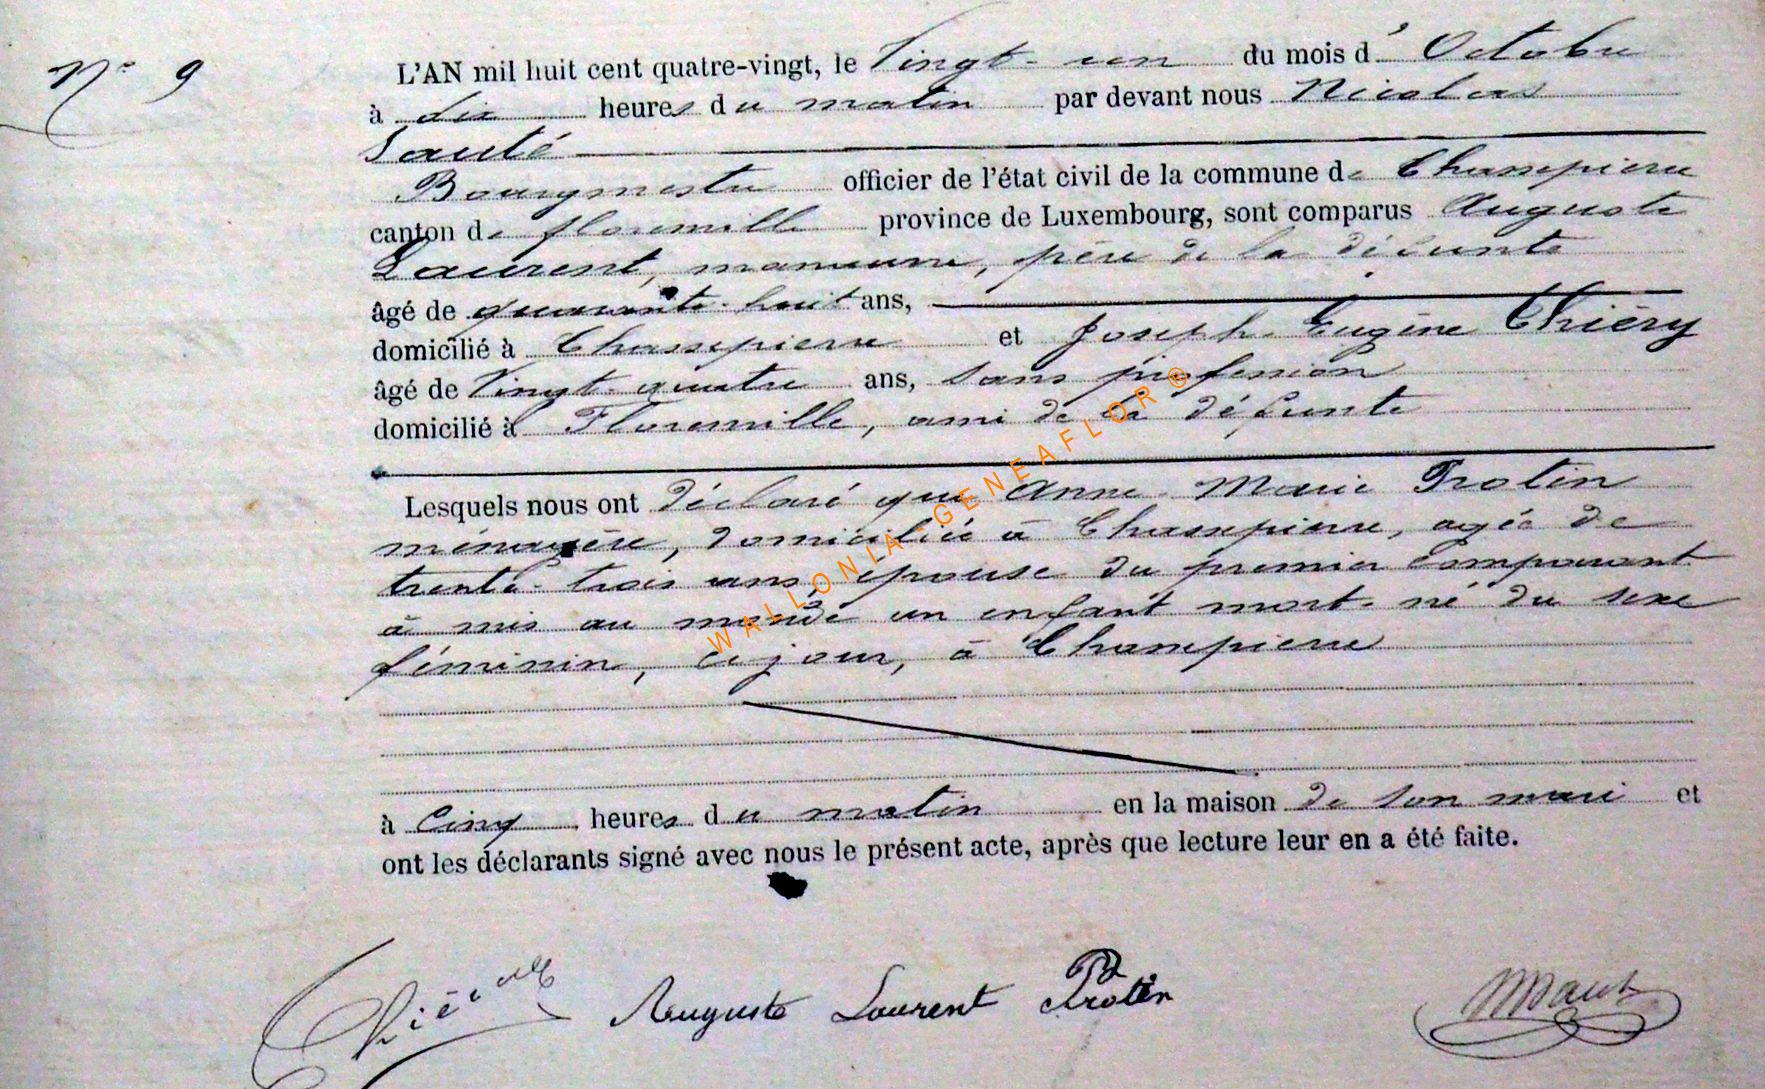 N° 9
L'AN mil huit cent quatre-vingt, le Vingt-un du mois d' Octobre
à dix heures du matin par devant nous Nicolas
Santé
Bourgmestre officier de l'état civil de la commune de Chassepierre
canton de florenville province de Luxembourg, sont comparus Auguste
Laurent, manœuvre, père de la défunte
âgé de quarante-huit ans,
domicilié à Chassepierre et Joseph Eugène Thiéry
âgé de Vingt-quatre ans, sans profession
domicilié à Florenville, ami de la défunte
Lesquels nous ont déclaré que Anne-Marie Protin
ménagère, domiciliée à Chassepierre, agée de
trente-trois ans, épouse du premier comparant
à mis au monde un enfant mort-né du sexe
féminin, ce jour, à Chassepierre
à cinq heures du matin en la maison de son mari et
ont les déclarants signé avec nous le présent acte, après que lecture leur en a été faite.
Auguste Laurent Protin
WALLONIA GENEAFLOR ®